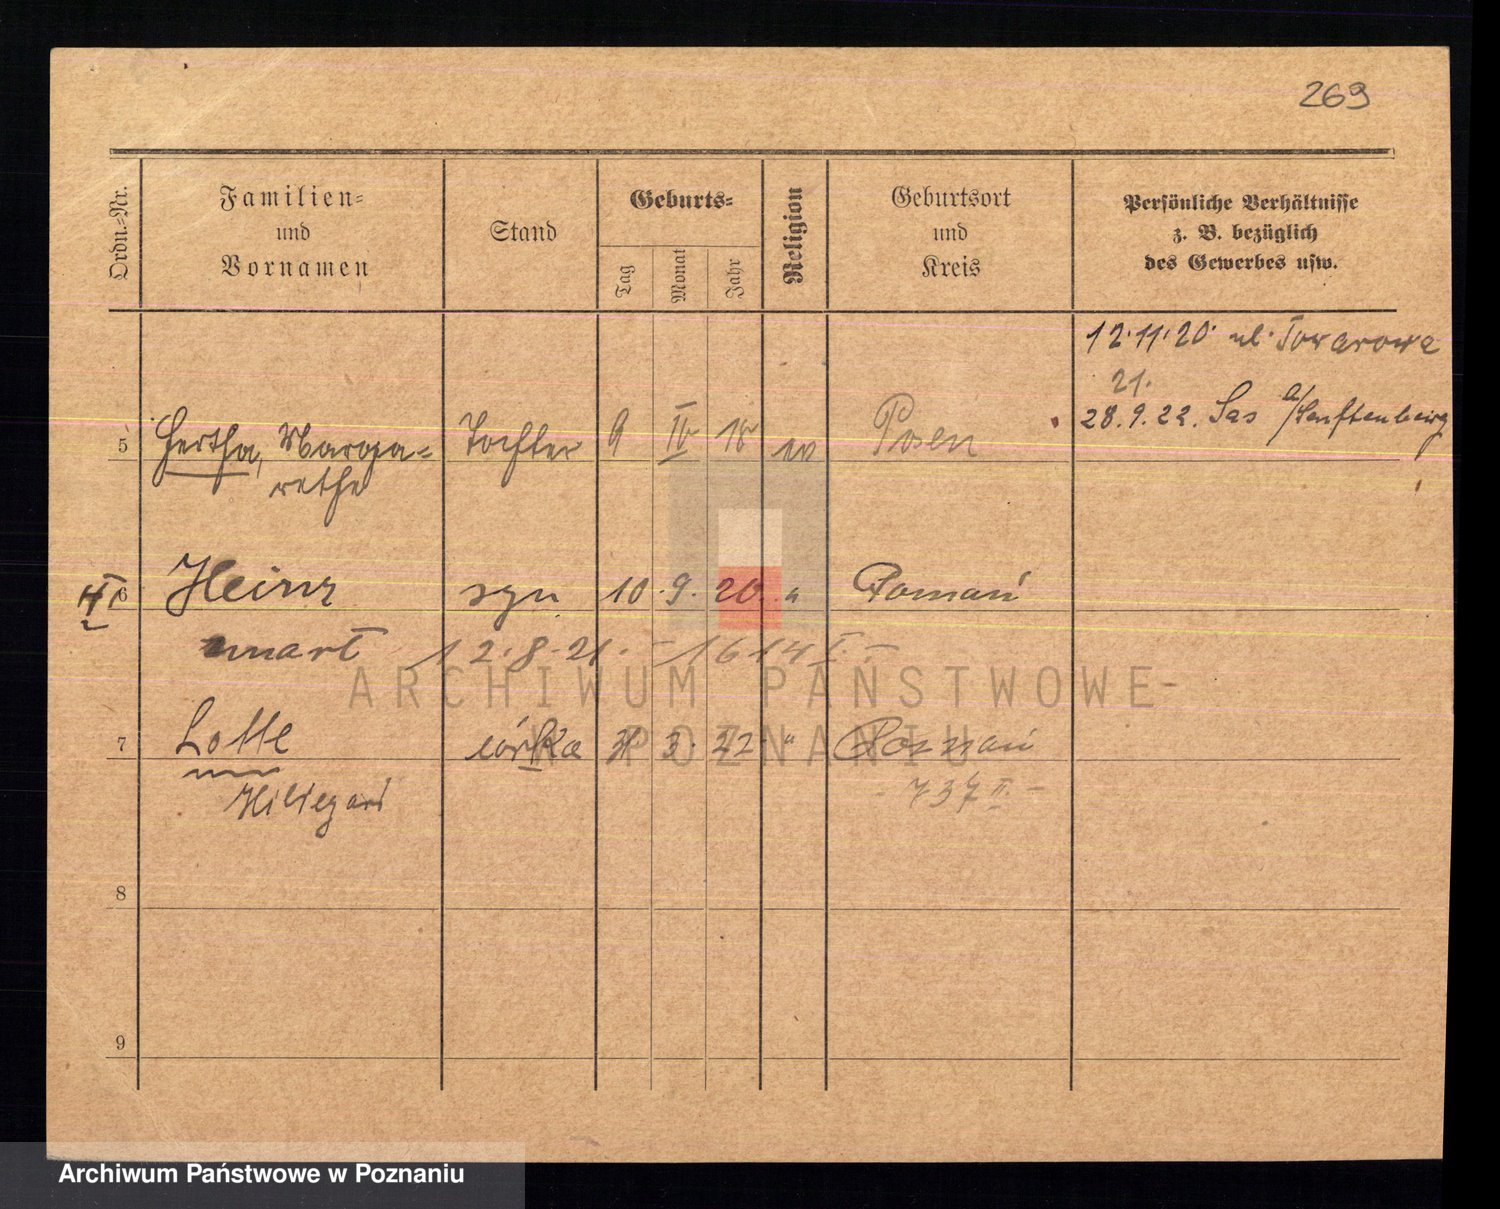 269
Ordn.-Nr.
Familien-
und
Vornamen
Stand
Geburts-
Tag
Monat
Jahr
Religion
Geburtsort
und
Kreis
Persönliche Verhältnisse
z. B. bezüglich
des Gewerbes usw.
12.11.20 ul. Towarowa
21.
28.9.22. Sas a/Senftenberg
5 Hertha, Marga- Tochter 9 IV 18 ev Posen
rethe
6 Heinz syn 10. 9. 20. " Poznań
zmarł 12.8.21. - 1614 I. -
7 Lotte córka 3. 22. " Poznań
Hildegard - 737 II. -
8
9
ARCHIWUM PAŃSTWOWE
W POZNANIU
Archiwum Państwowe w Poznaniu